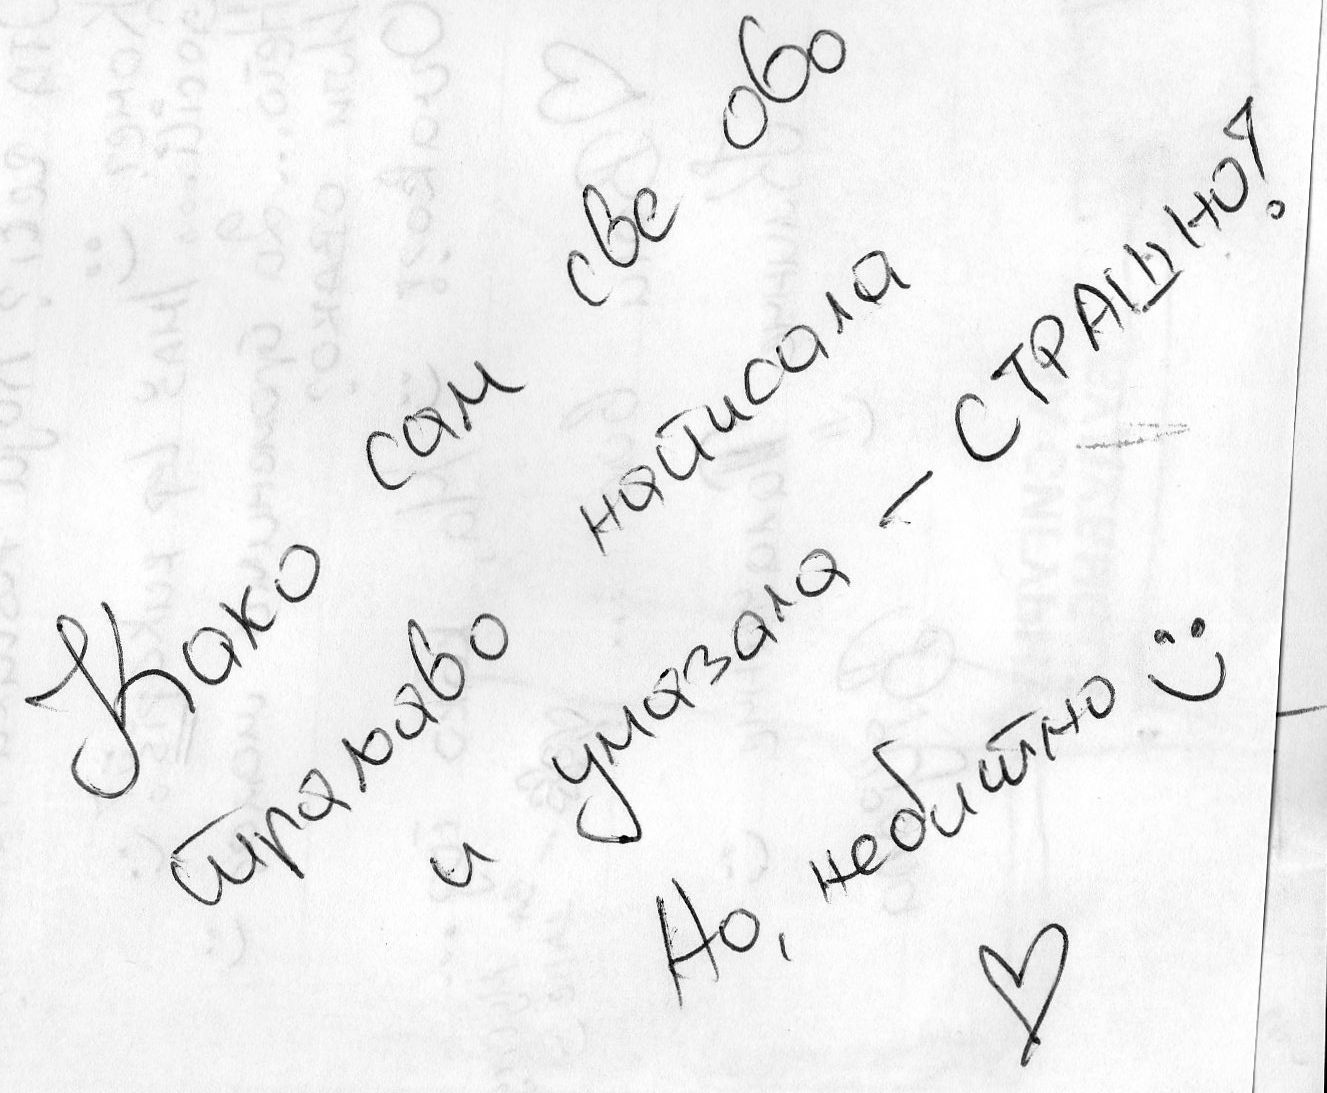 Како сам све ово
траљаво написала
и умазала – СТРАШНО!
Но, небитно :)